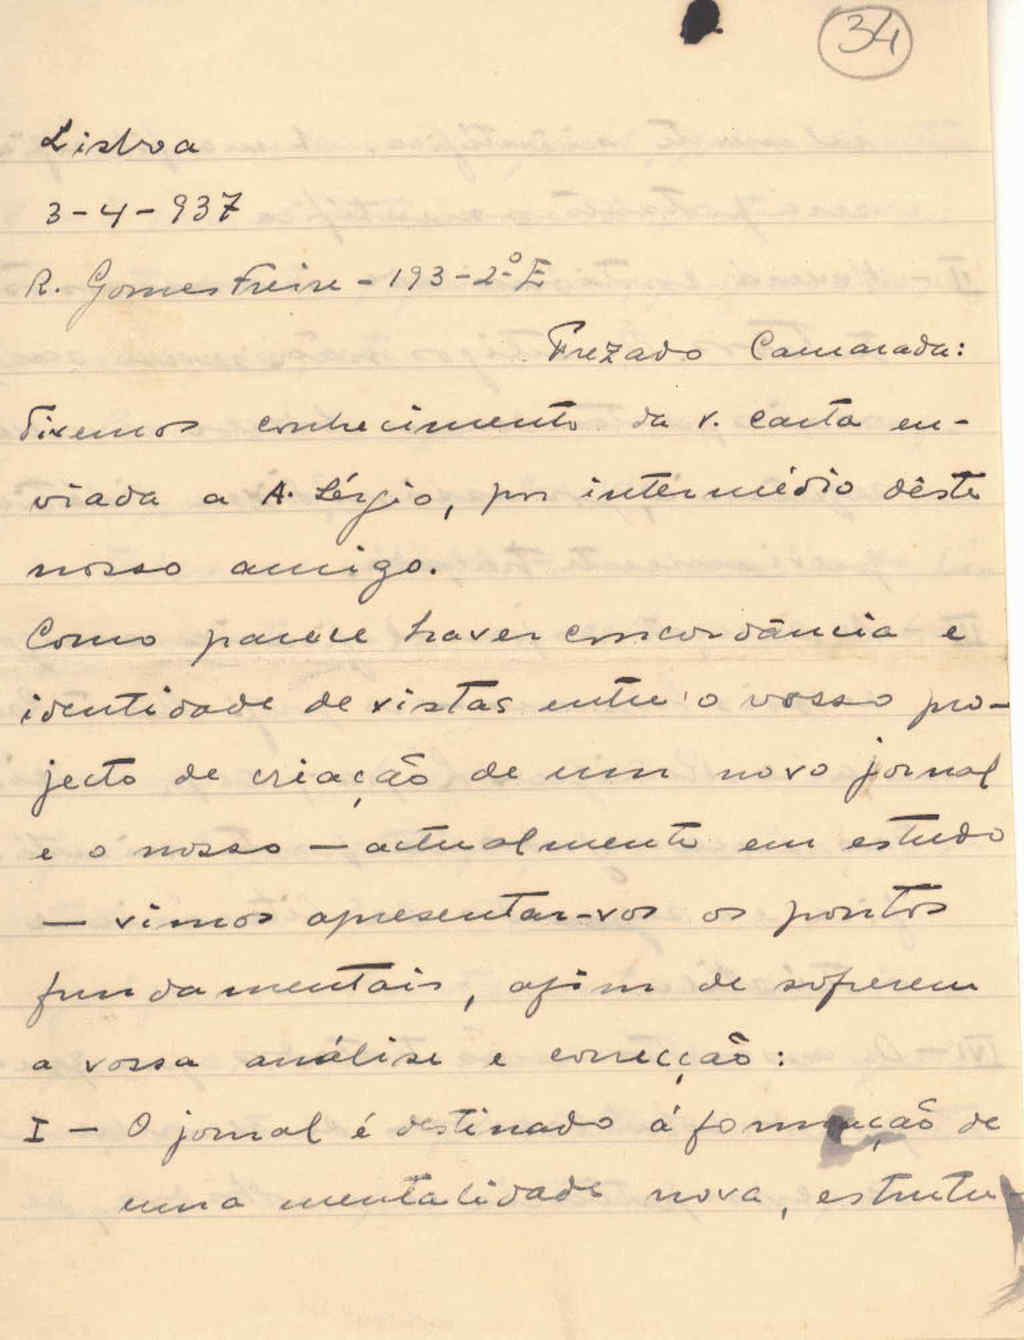 34
Lisboa
3-4-937
R. Gomes Freire - 193 - 2º E
Prezado Camarada:
Tivemos conhecimento da v. carta en-
viada a A. Sérgio, por intermédio dêste
nosso amigo.
Como parece haver concordância e
identidade de vistas entre o vosso pro-
jecto de criação de um novo jornal
e o nosso — actualmente em estudo
— vimos apresentar-vos os pontos
fundamentais, afim de sofrerem
a vossa análise e correcção:
I — O jornal é destinado á formação de
uma mentalidade nova, estrutu-